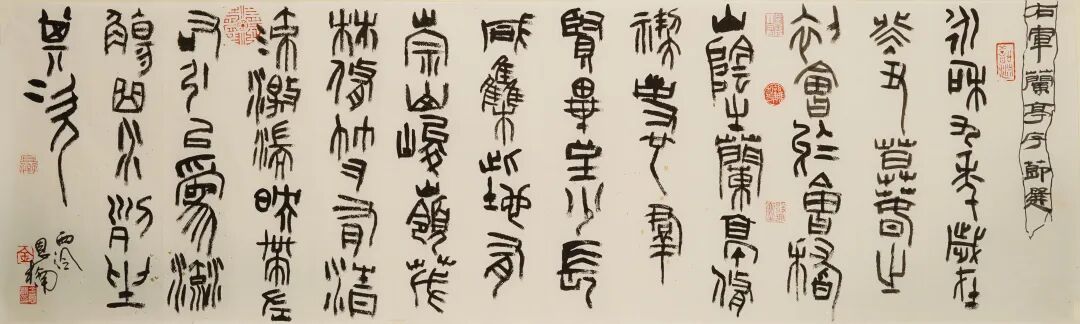 右軍蘭亭序節選
永和九年歲在
癸丑暮春之
初會於會稽
山陰之蘭亭脩
禊事也群
賢畢至少長
咸集此地有
崇山峻嶺茂
林脩竹又有清
流激湍映帶左
右引以為流
觴曲水列坐
其次
西泠